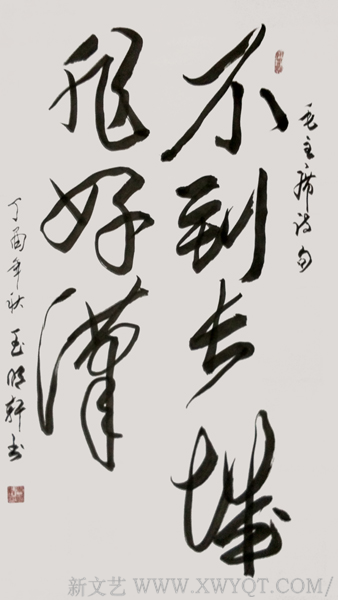 毛主席诗句
不到长城
非好汉
丁酉年秋 玉明轩书
新文艺 WWW.XWYQT.COM/